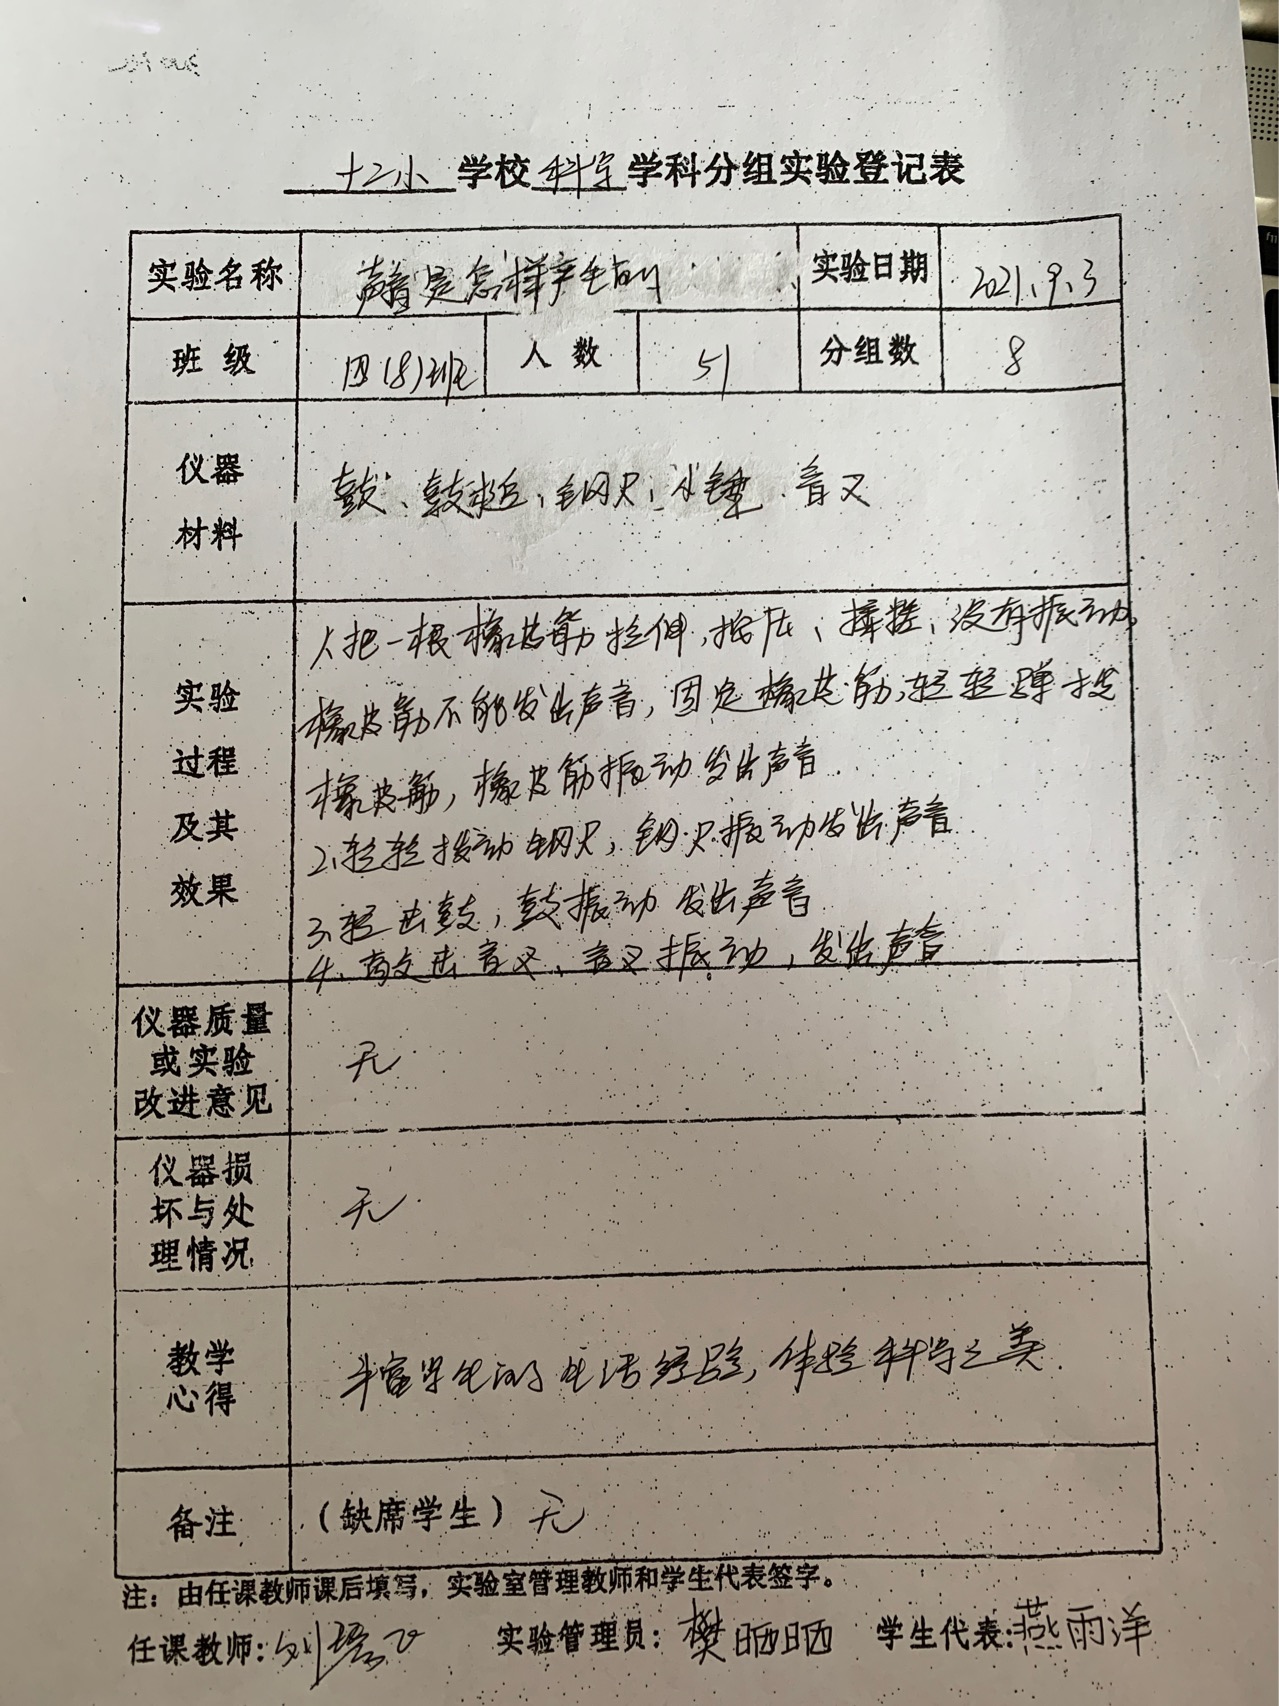 十二小 学校 科学 学科分组实验登记表
实验名称 声音是怎样产生的 实验日期 2021.9.3
班级 四(8)班 人数 51 分组数 8
仪器
材料
鼓、鼓槌、钢尺、小锤、音叉
实验
过程
及其
效果
1、把一根橡皮筋拉伸,按压、揉搓、没有振动,
橡皮筋不能发出声音,固定橡皮筋,轻轻弹拨
橡皮筋,橡皮筋振动发出声音.
2、轻轻拨动钢尺,钢尺振动发出声音
3、轻击鼓,鼓振动发出声音
4、敲击音叉、音叉振动,发出声音
仪器质量
或实验
改进意见
无
仪器损
坏与处
理情况
无
教学
心得
丰富学生的生活经验,体验科学之美.
备注 (缺席学生) 无
注:由任课教师课后填写,实验室管理教师和学生代表签字。
任课教师:刘 实验管理员:樊晒晒 学生代表:燕雨洋